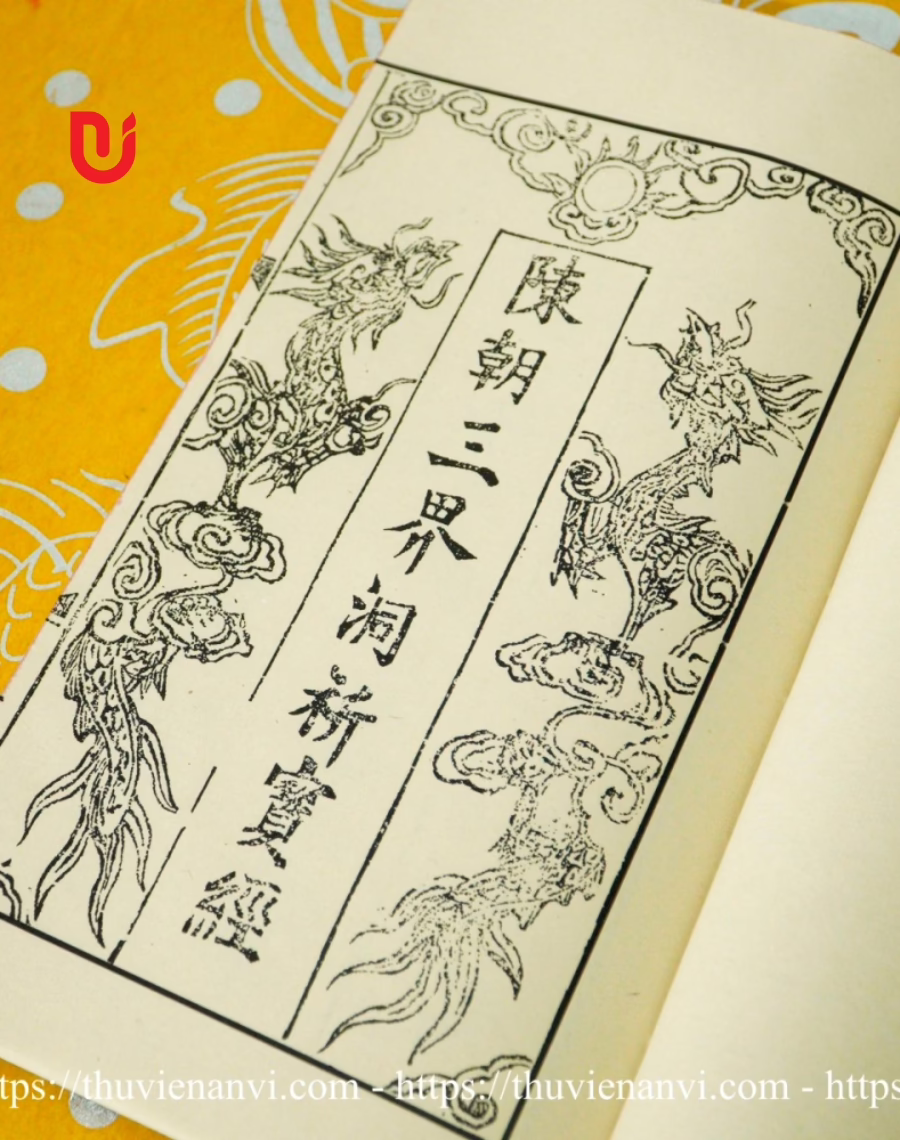 陳朝三界洞祈寶經
ttps://thuvienanvi.com - https://thuvienanvi.com - https